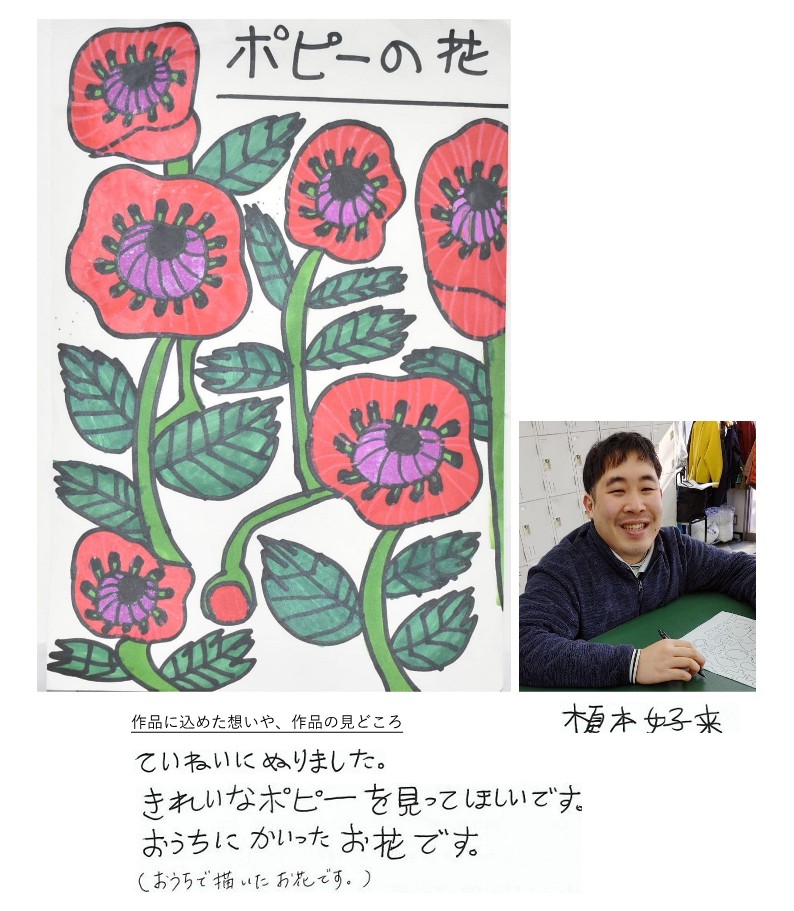 ポピーの花
植本好来
作品に込めた想いや、作品の見どころ
ていねいにぬりました。
きれいなポピーを見てほしいです。
おうちにかいったお花です。
(おうちで描いたお花です。)